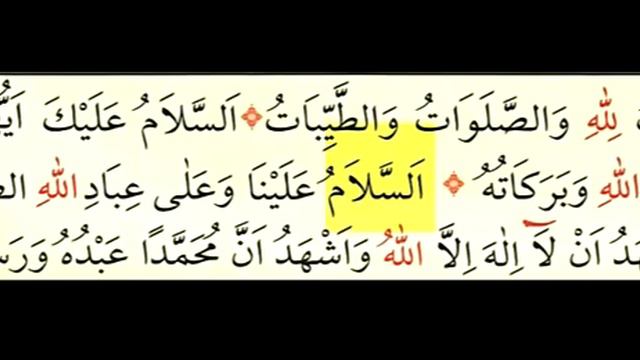 لِلّٰهِ وَالصَّلَوَاتُ وَالطَّيِّبَاتُ اَلسَّلَامُ عَلَيْكَ
اللّٰهِ وَبَرَكَاتُهُ اَلسَّلَامُ عَلَيْنَا وَعَلٰى عِبَادِ اللّٰهِ
اَنْ لَٓا اِلٰهَ اِلَّا اللّٰهُ وَاَشْهَدُ اَنَّ مُحَمَّدًا عَبْدُهُ